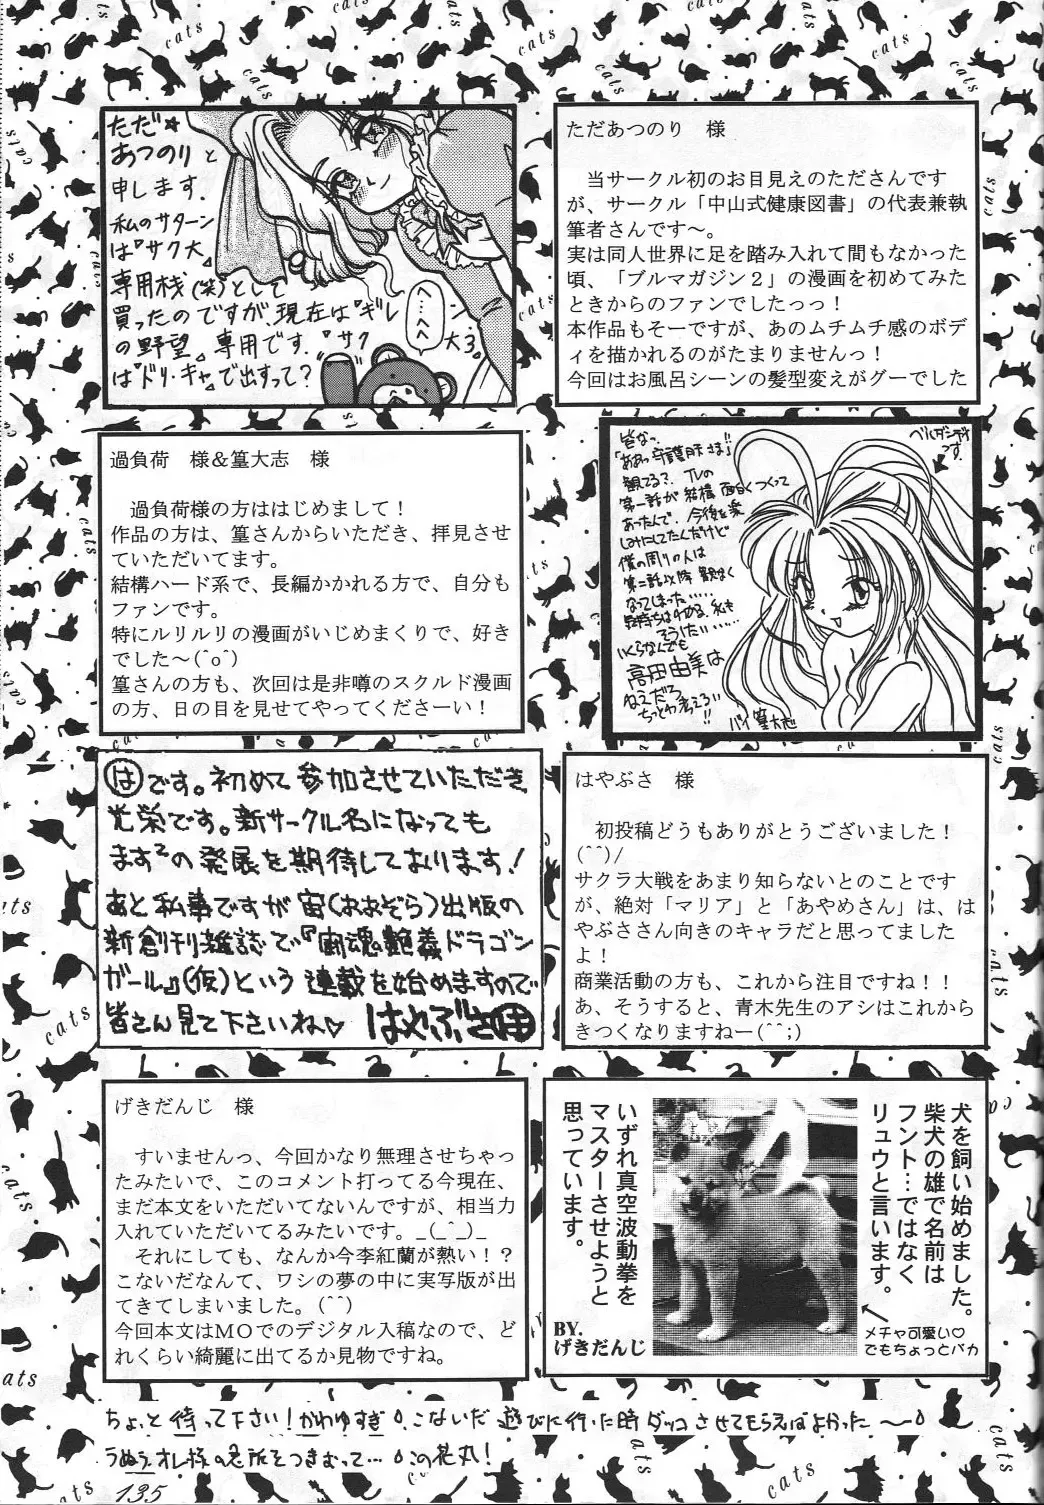 ただ★
あつのりと
申します.
私のサターン
は『サク大』
専用機(笑)として
買ったのですが、現在は『ギレン
の野望』専用です.『サク大3』
は『ドリ・キャ』で出すって?
へ…へへ
ただあつのり 様
当サークル初のお目見えのたださんです
が、サークル「中山式健康図書」の代表兼執
筆者さんです〜。
実は同人世界に足を踏み入れて間もなかった
頃、「ブルマガジン2」の漫画を初めてみた
ときからのファンでしたっっ!
本作品もそーですが、あのムチムチ感のボデ
ィを描かれるのがたまりませんっ!
今回はお風呂シーンの髪型変えがグーでした
過負荷 様&篁大志 様
過負荷様の方ははじめまして!
作品の方は、篁さんからいただき、拝見させ
ていただいてます。
結構ハード系で、長編かかれる方で、自分も
ファンです。
特にルリルリの漫画がいじめまくりで、好き
でした〜(^o^)
篁さんの方も、次回は是非噂のスクルド漫画
の方、日の目を見せてやってくださーい!
皆なっ
「ああっ守護月天さま」!!
観てる?TVの
第一話が結構面白くつくって
あったんで、今後を楽
しみにしてたんだけど
僕の周りの人は
第二話以降観なく
なってしまった……
気持ちはわかる、私も
そうしたい……
いくらなんでも
高田由美は
ねえだろ
ちっとわ考えろい
!!
ベルダンディ
っす.
バイ篁大志
はです。初めて参加させていただき
光栄です。新サークル名になっても
ます²の発展を期待しております!
あと私事ですが宙(おおぞら)出版の
新創刊雑誌で『宙魂艶義ドラゴン
ガール』(仮)という連載を始めますので
皆さん見て下さいね♡ はやぶさ
はやぶさ 様
初投稿どうもありがとうございました!
(^^)/
サクラ大戦をあまり知らないとのことです
が、絶対「マリア」と「あやめさん」は、は
やぶささん向きのキャラだと思ってました
よ!
商業活動の方も、これから注目ですね!!
あ、そうすると、青木先生のアシはこれから
きつくなりますねー(^^;)
げきだんじ 様
すいませんっ、今回かなり無理させちゃっ
たみたいで、このコメント打ってる今現在、
まだ本文をいただいてないんですが、相当力
入れていただいてるみたいです。_(_^_)_
それにしても、なんか今李紅蘭が熱い!?
こないだなんて、ワシの夢の中に実写版が出
てきてしまいました。(^^)
今回本文はMOでのデジタル入稿なので、ど
れくらい綺麗に出てるか見物ですね。
犬を飼い始めました。
柴犬の雄で名前は
フント…ではなく
リュウと言います。
メチャ可愛い♡
でもちょっとバカ
いずれ真空波動拳を
マスターさせようと
思っています。
BY.
げきだんじ
ちょっと待って下さい!かわゆすぎ。こないだ遊びに行った時ダッコさせてもらえばよかった〜〜。
うぬぅ、オレ様の急所をつきむって…。この花丸!
135
cats
cats
cats
cats
cats
cats
cats
cats
cats
cats
cats
cats
cats